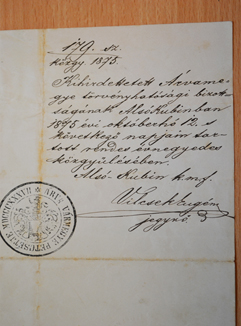 179. sz.
közgy 1895.
Kihirdettetett Árvame-
gye törvényhatósági bizott-
ságának Alsó Kubinban
1895 évi októberhó 12. s
következő napjain tar-
tott rendes évnegyedes
közgyülésében.
Alsó Kubin kmf.
jegyző